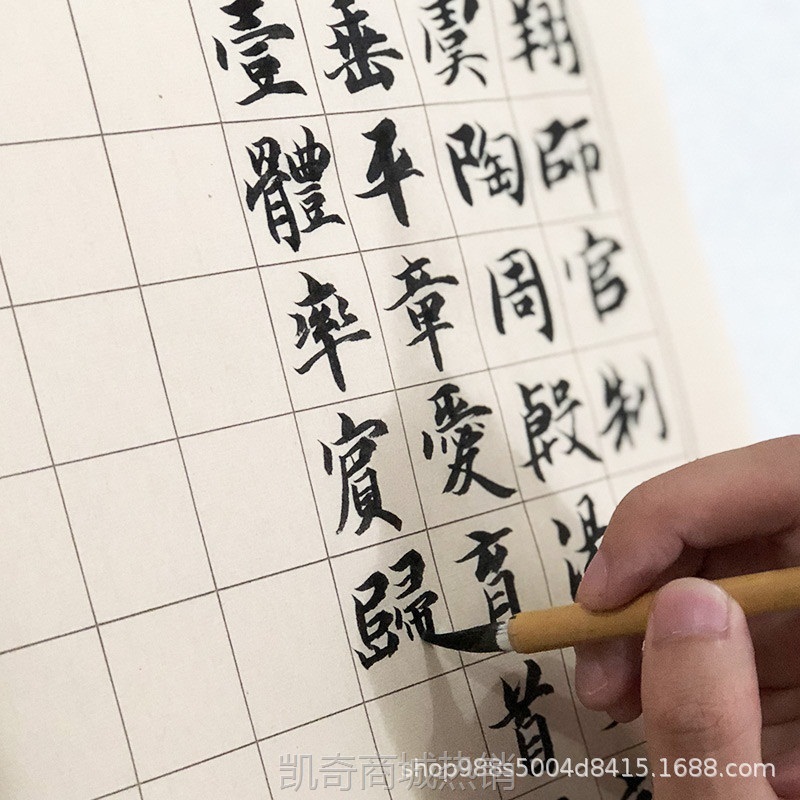 翔師官制
虞陶周殷
垂平章愛育首
壹體率賓歸
凯奇商城热销
shop988s5004d8415.1688.com